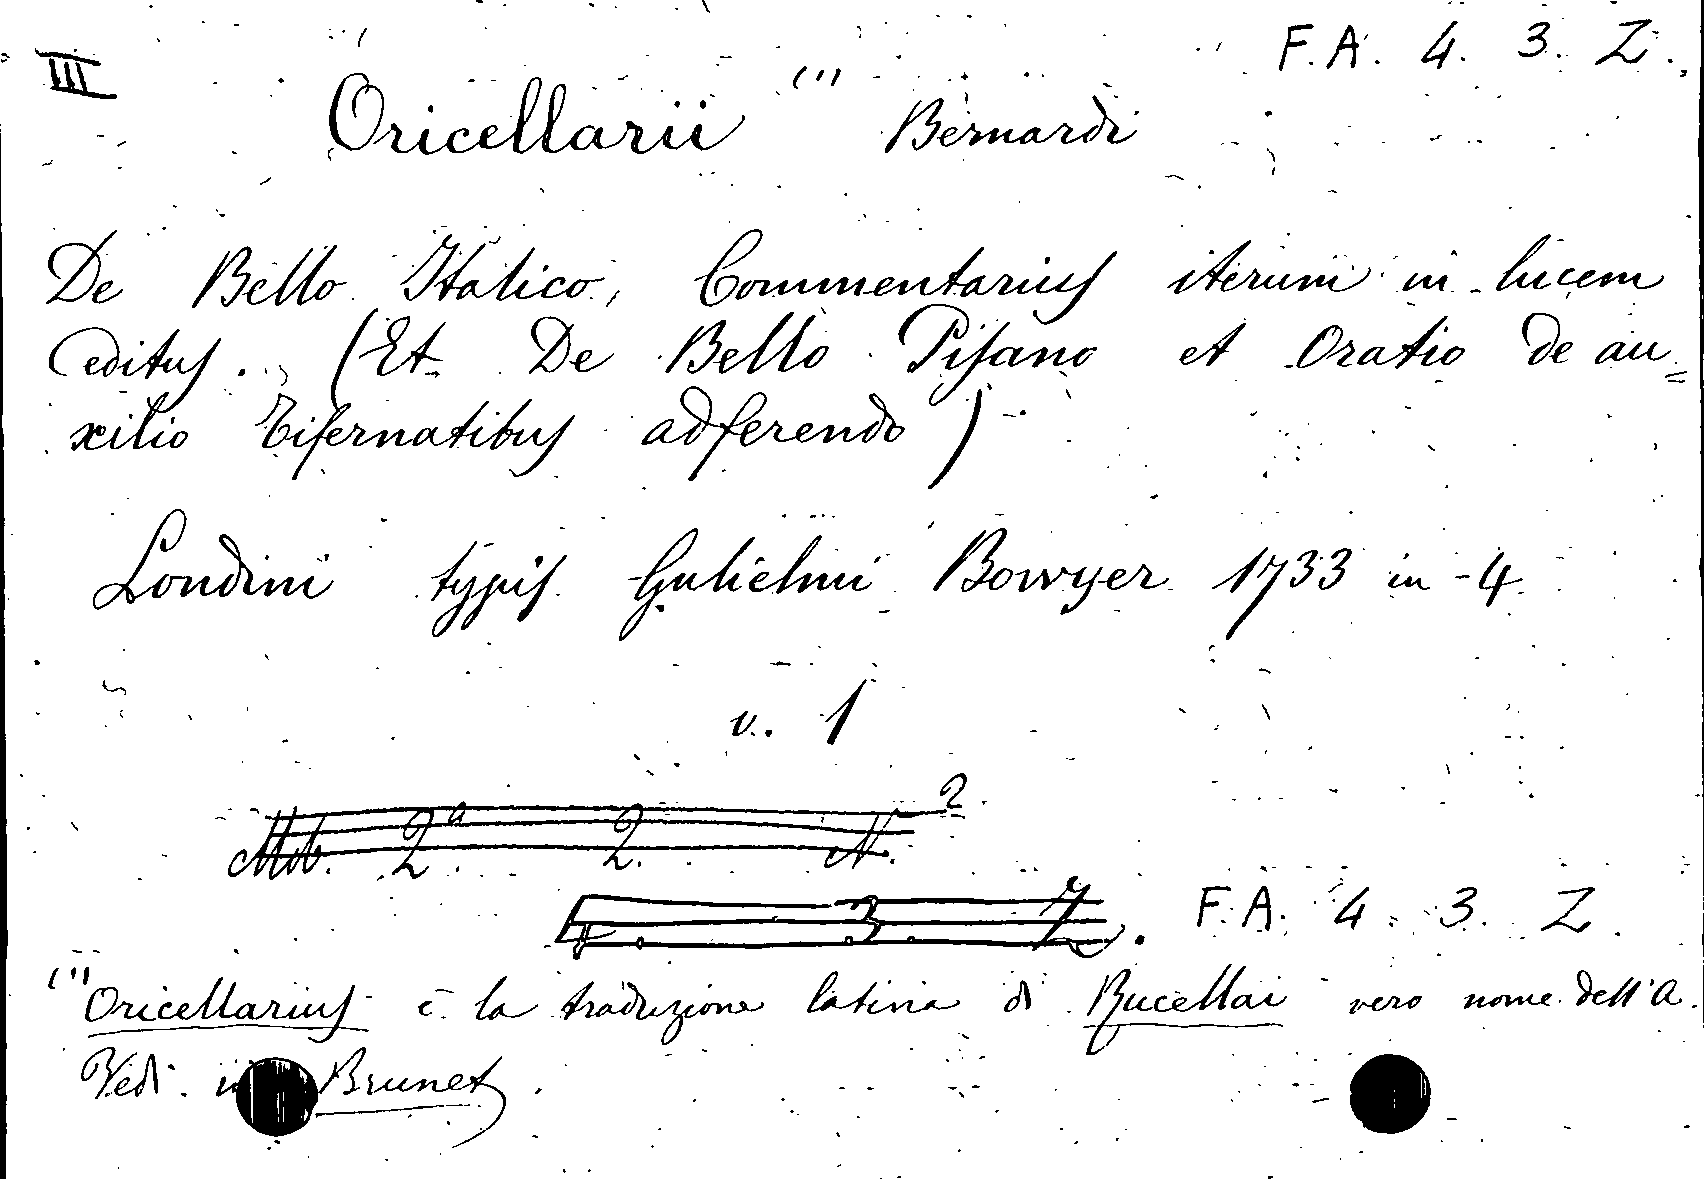 III F. A. 4. 3. Z.
Oricellarii (1) Bernardi
De Bello Italico, Commentarius iterum in lucem
editus. (Et De Bello Pisano et Oratio de au=
xilio Tifernatibus adferendo)
Londini typis Gulielmi Bowyer 1733 in-4.
v. 1
Mob. 2a 2. N. 2
4. 3 7. F. A. 4. 3. Z.
(1) Oricellarius è la traduzione latina di Rucellai vero nome dell'A.
Vedi in Brunet.